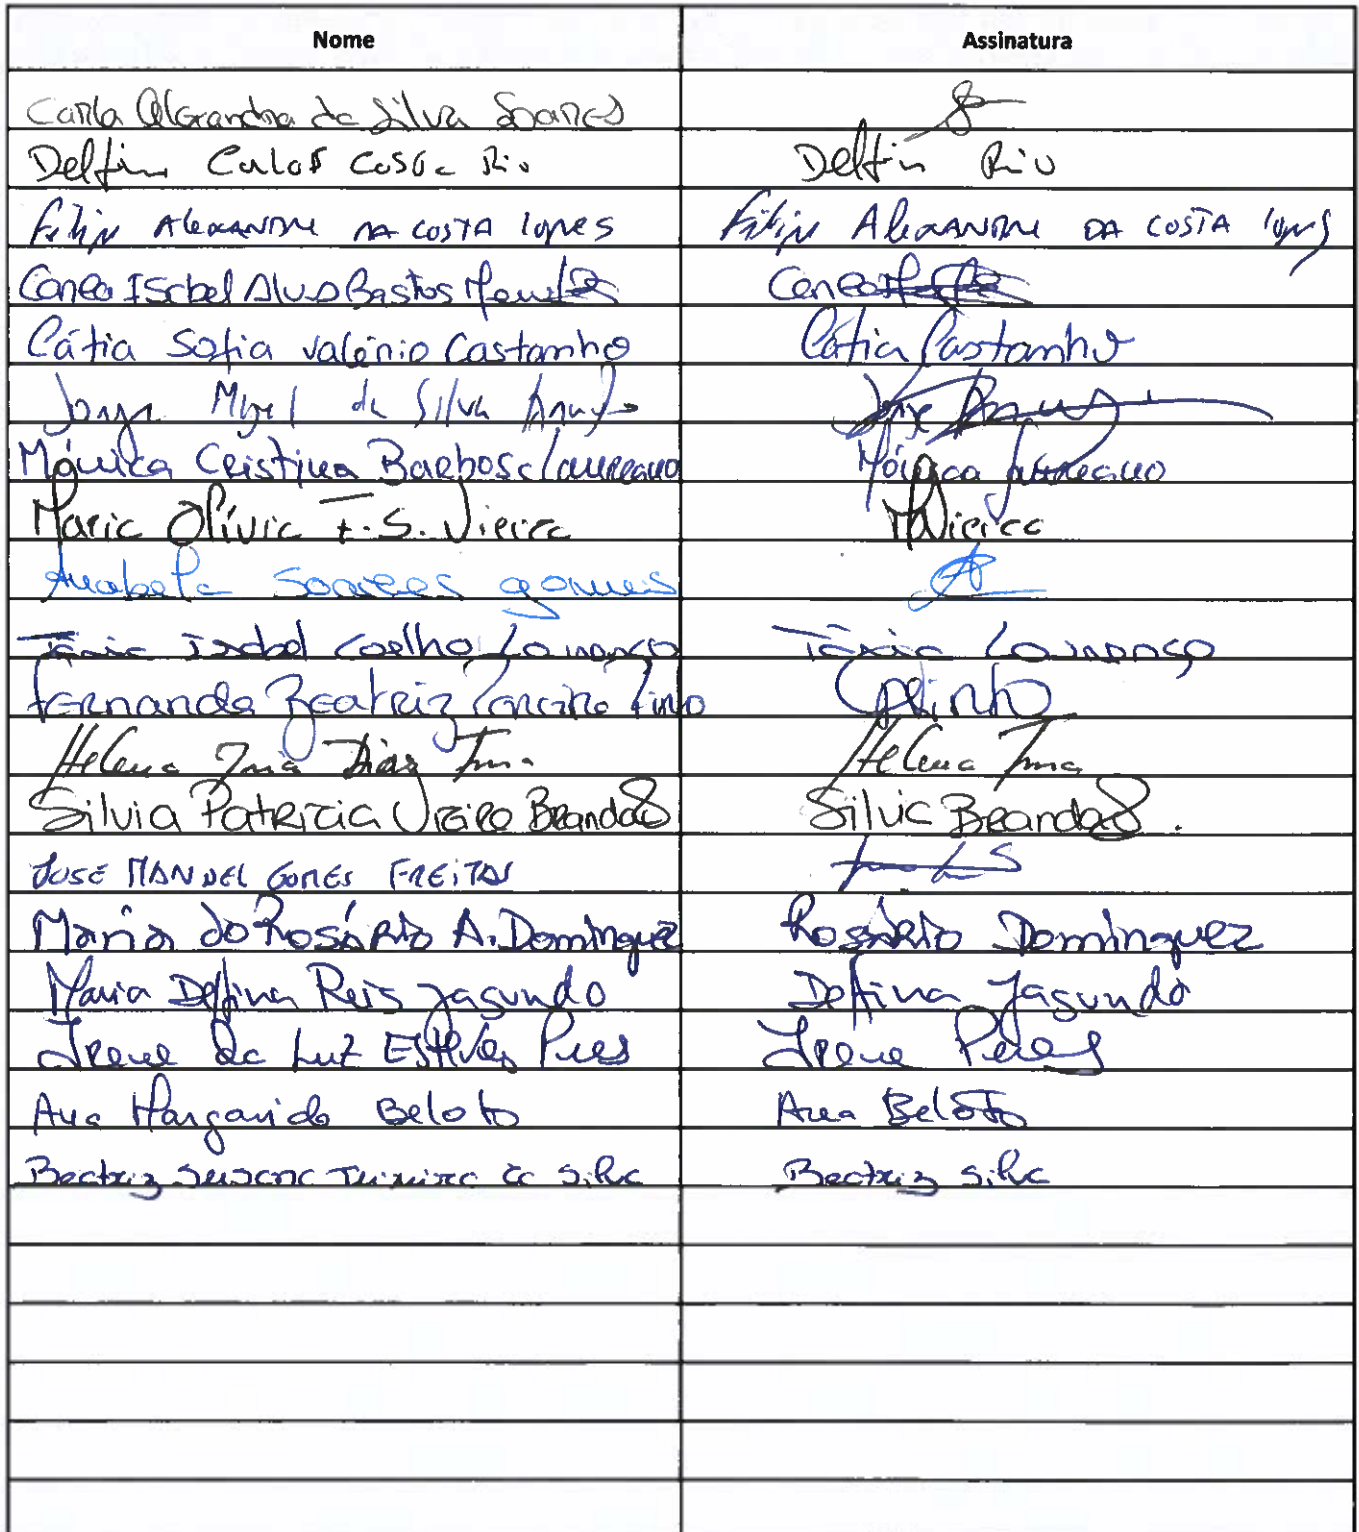 Nome Assinatura
Carla Alexandra da Silva Soares
Delfim Carlos Costa Rio Delfin Rio
Filipe Alexandre DA COSTA lopes Filipe Alexandre DA COSTA lopes
Isabel Alves Bastos
Cátia Sofia Valério Castanho Cátia Castanho
Jorge Miguel da Silva Araujo Jorge Araujo
Mónica Cristina Barbosa Laureano Mónica Laureano
Maria Olívia F. S. Vieira MVieira
Anabela Soares gomes
Tânia Isabel Coelho Lourenço Tânia Lourenço
Fernanda Beatriz Pinto
Helena Dias Helena
Silvia Patricia Vieira Brandão Silvia Brandão.
JOSÉ MANUEL GOMES FREITAS
Maria do Rosário A. Dominguez Rosário Dominguez
Maria Delfina Reis Jasundo Delfina Jasundo
Irene da Luz Esteves Pires Irene Peres
Ana Margarida Beloto Ana Beloto
Beatriz Susana Teixeira da Silva Beatriz Silva